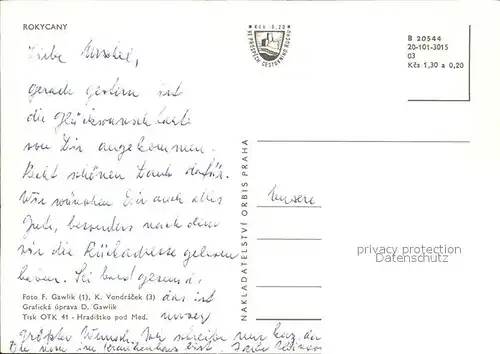 ROKYCANY
Kčs 0,20
VE PROSPĚCH CESTOVNÍHO RUCHU
B 20544
20-101-3015
03
Kčs 1,30 a 0,20
Liebe
gerade gestern ist
die Glückwunschkarte
von Dir angekommen.
Recht schönen Dank dafür.
Wir wünschen Dir auch alles
Gute, besonders nach dem
wir die Rückadresse gelesen
haben. Sei bald gesund,
das ist
unser
größter Wunsch. Wir schreiben nur kurz, da
NAKLADATELSTVÍ ORBIS PRAHA
Unsere
privacy protection
Datenschutz
Foto F. Gawlik (1), K. Vondráček (3)
Grafická úprava D. Gawlik
Tisk OTK 41 - Hradištko pod Med.